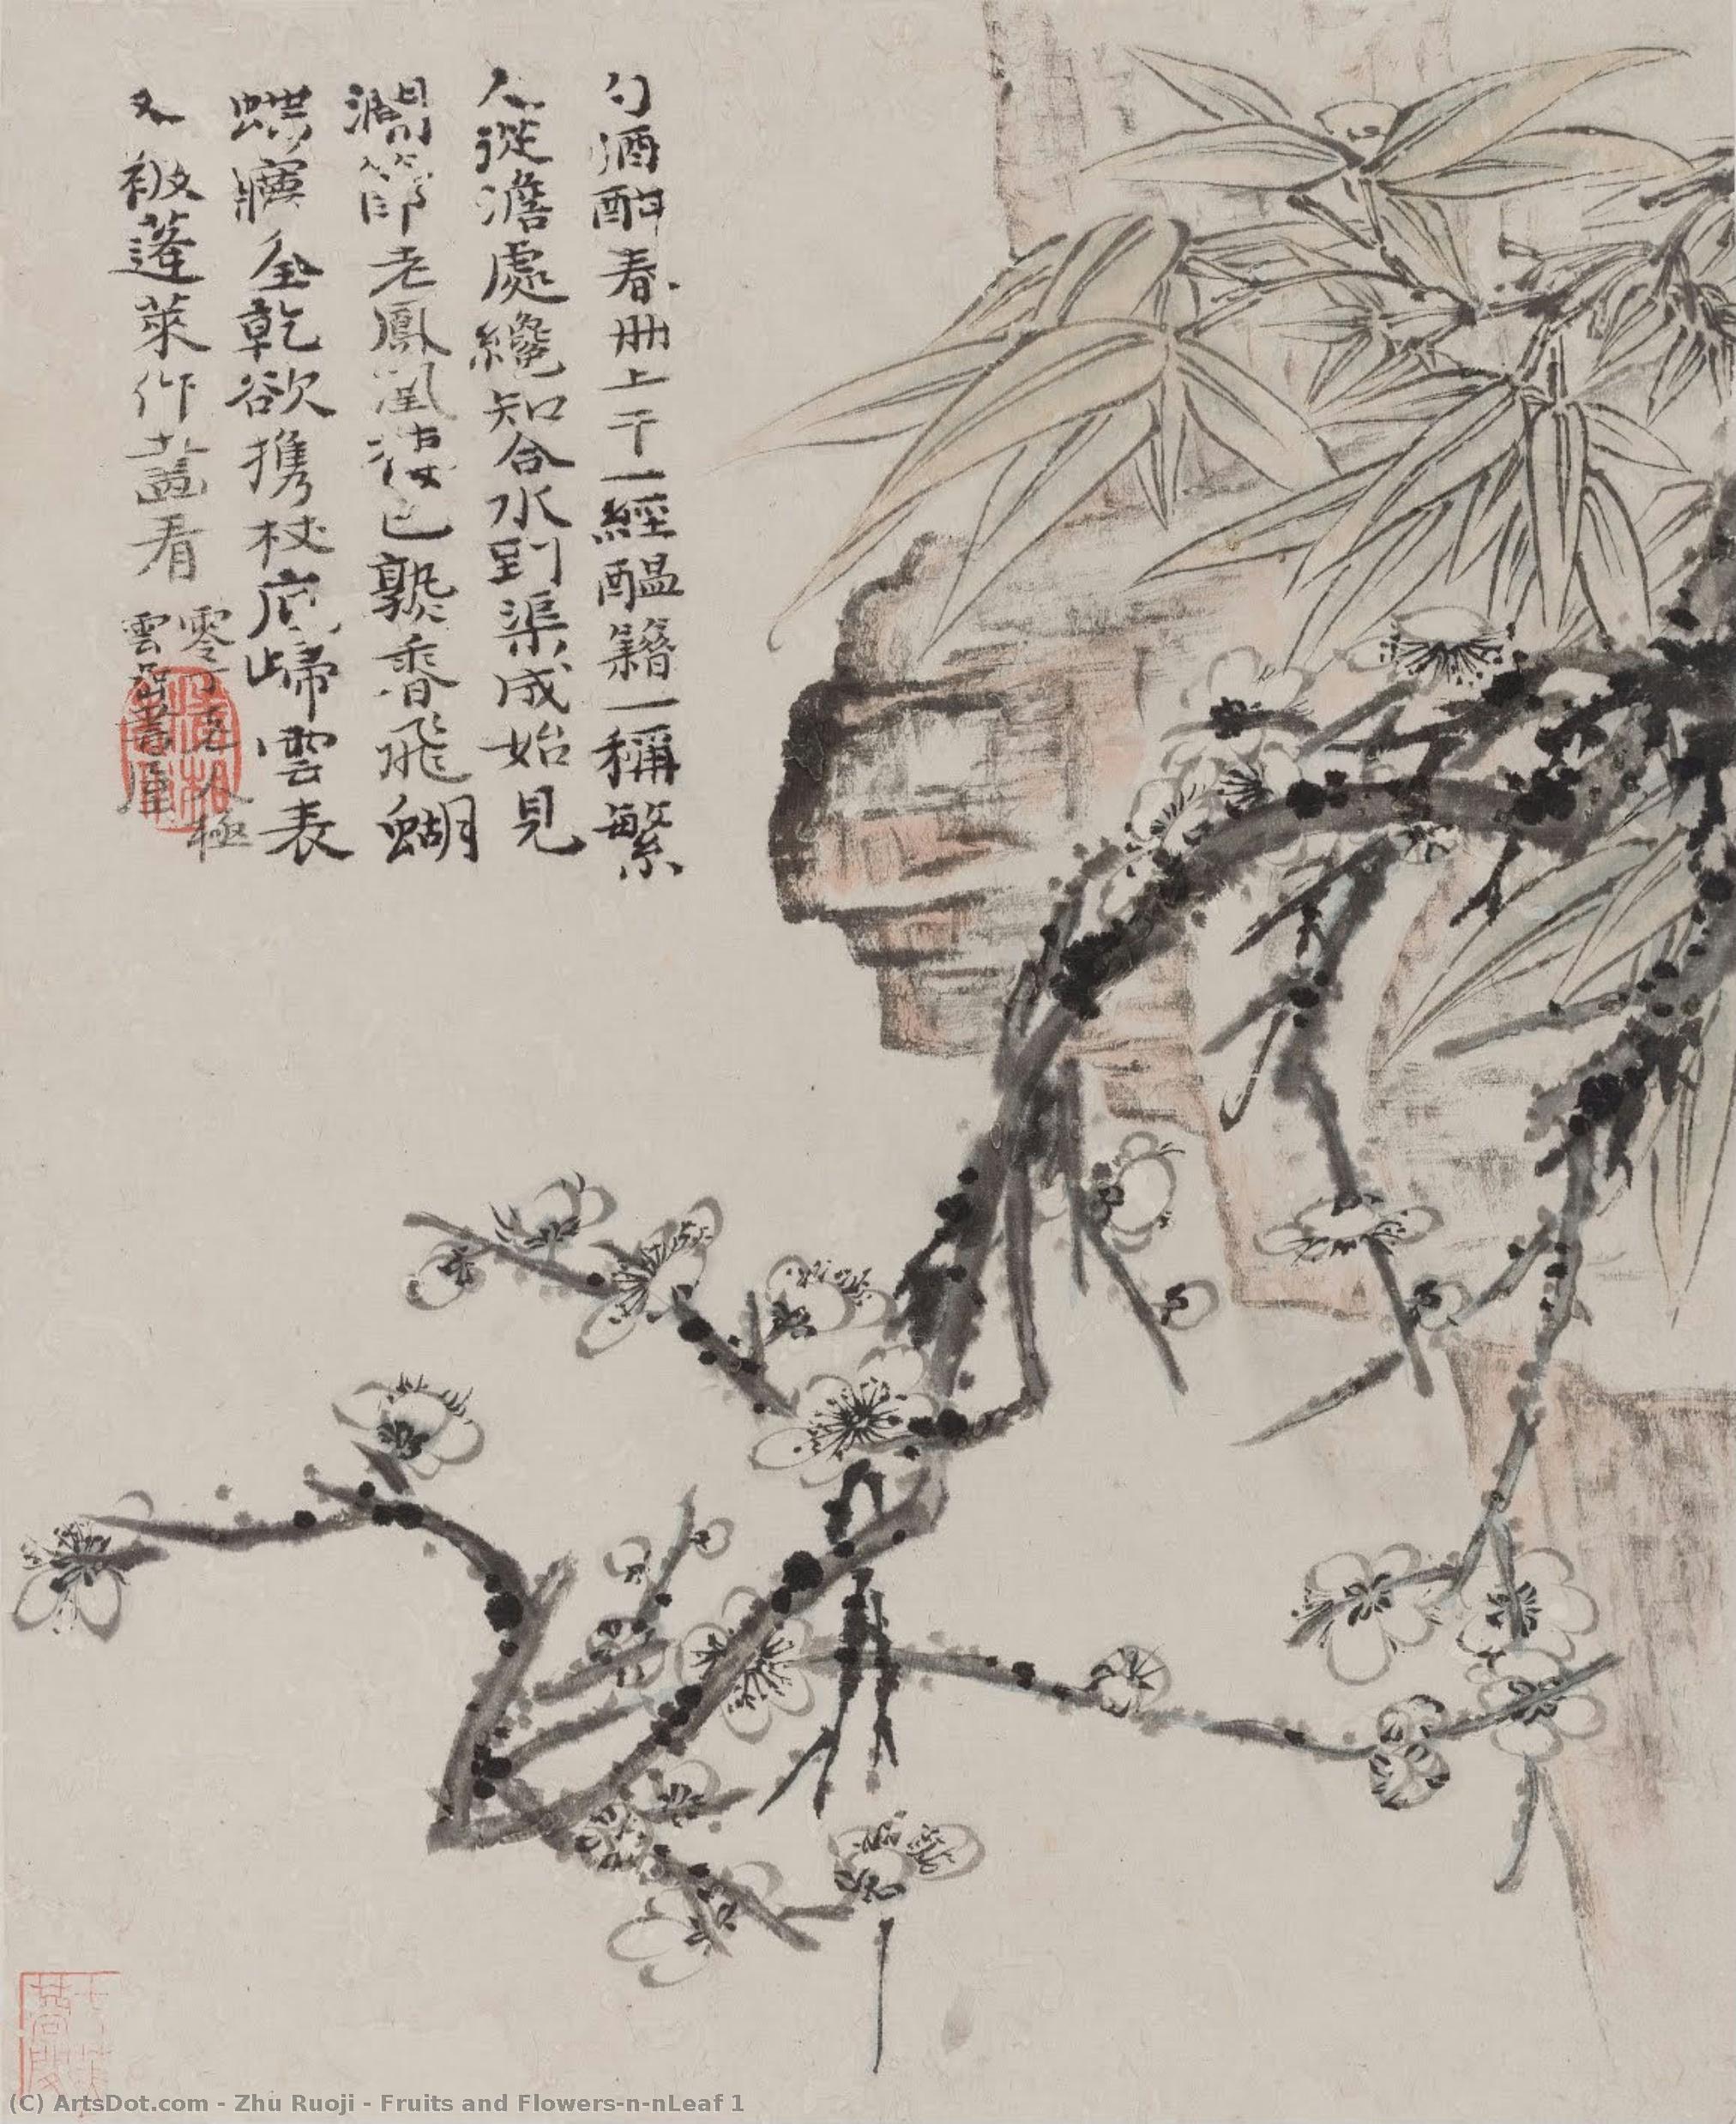 勺酒酣春冊上干一經醞籍一稱繁
人從澹處纔知合水到渠成始見
澗節老鳳凰棲色熟香飛蝴
蝶癀全乾欲携杖底歸雲表
又被蓬萊作蓋看
零丁老人極
雲
(C) ArtsDot.com - Zhu Ruoji - Fruits and Flowers-n-nLeaf 1